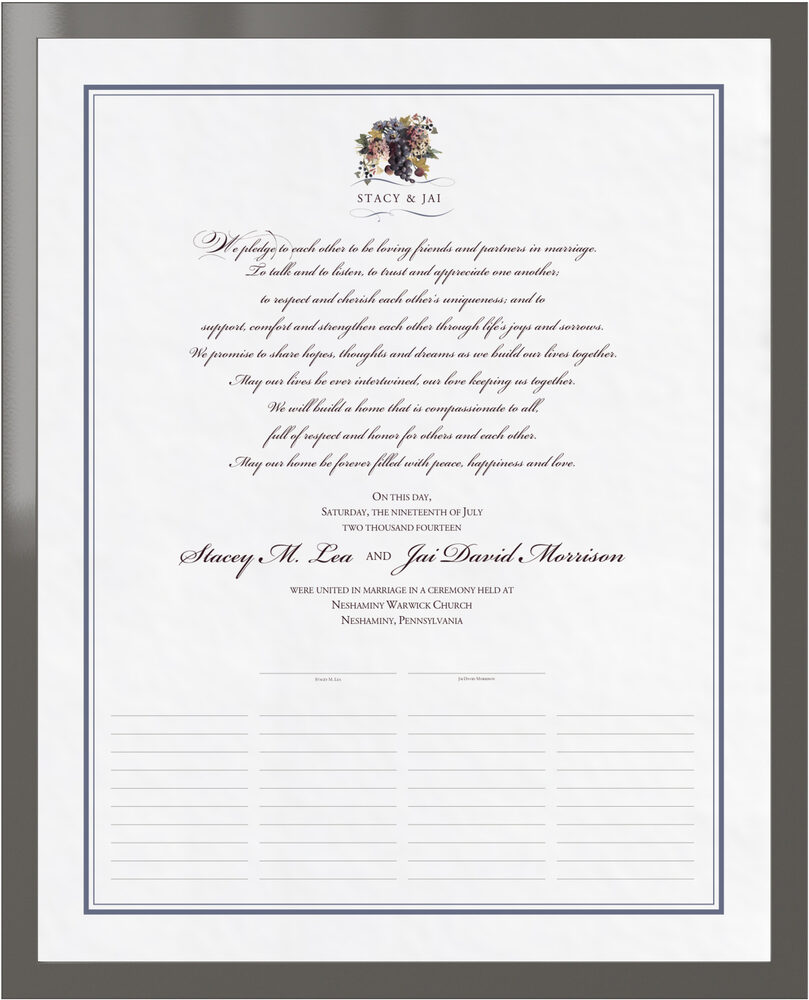 STACY & JAI
We pledge to each other to be loving friends and partners in marriage.
To talk and to listen, to trust and appreciate one another;
to respect and cherish each other's uniqueness; and to
support, comfort and strengthen each other through life's joys and sorrows.
We promise to share hopes, thoughts and dreams as we build our lives together.
May our lives be ever intertwined, our love keeping us together.
We will build a home that is compassionate to all,
full of respect and honor for others and each other.
May our home be forever filled with peace, happiness and love.
On this day,
Saturday, the nineteenth of July
two thousand fourteen
Stacey M. Lea and Jai David Morrison
were united in marriage in a ceremony held at
Neshaminy Warwick Church
Neshaminy, Pennsylvania
Stacey M. Lea Jai David Morrison